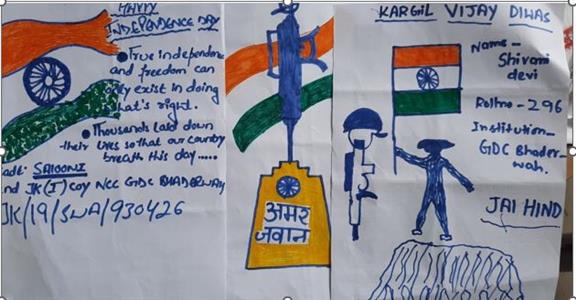 HAPPY
INDEPENDENCE DAY
True independence
and freedom can
only exist in doing
what's right.
Thousands laid down
their lives so that our country
breath this day.....
SALONI
nd JK(I) COY NCC GDC BHADERWAH
JK/19/SWA/930426
अमर
जवान
KARGIL VIJAY DIWAS
Name-
Shivani
devi
Rollno-296
Institution-
GDC Bhader-
wah.
JAI HIND